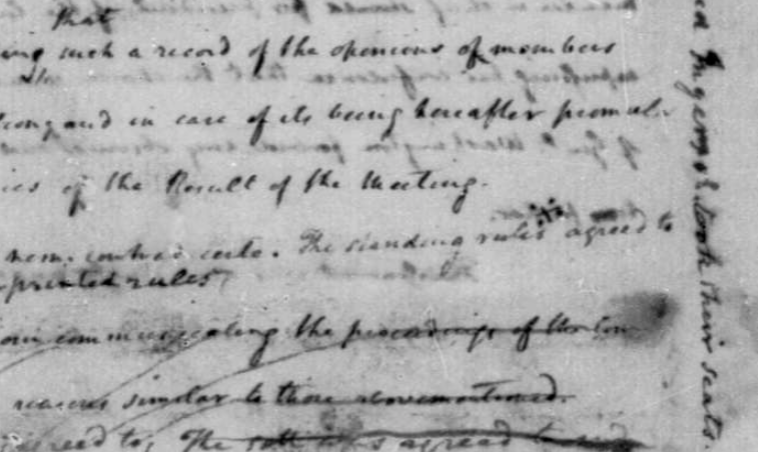 that
ing such a record of the opinions of members
and in case of its being hereafter promul-
of the Result of the Meeting.
nem. contrad. The standing rules agreed to
printed rules
communicating the proceedings of the
reasons similar to those abovementioned.
agreed to, The agreed to
Ingersol took their seats.